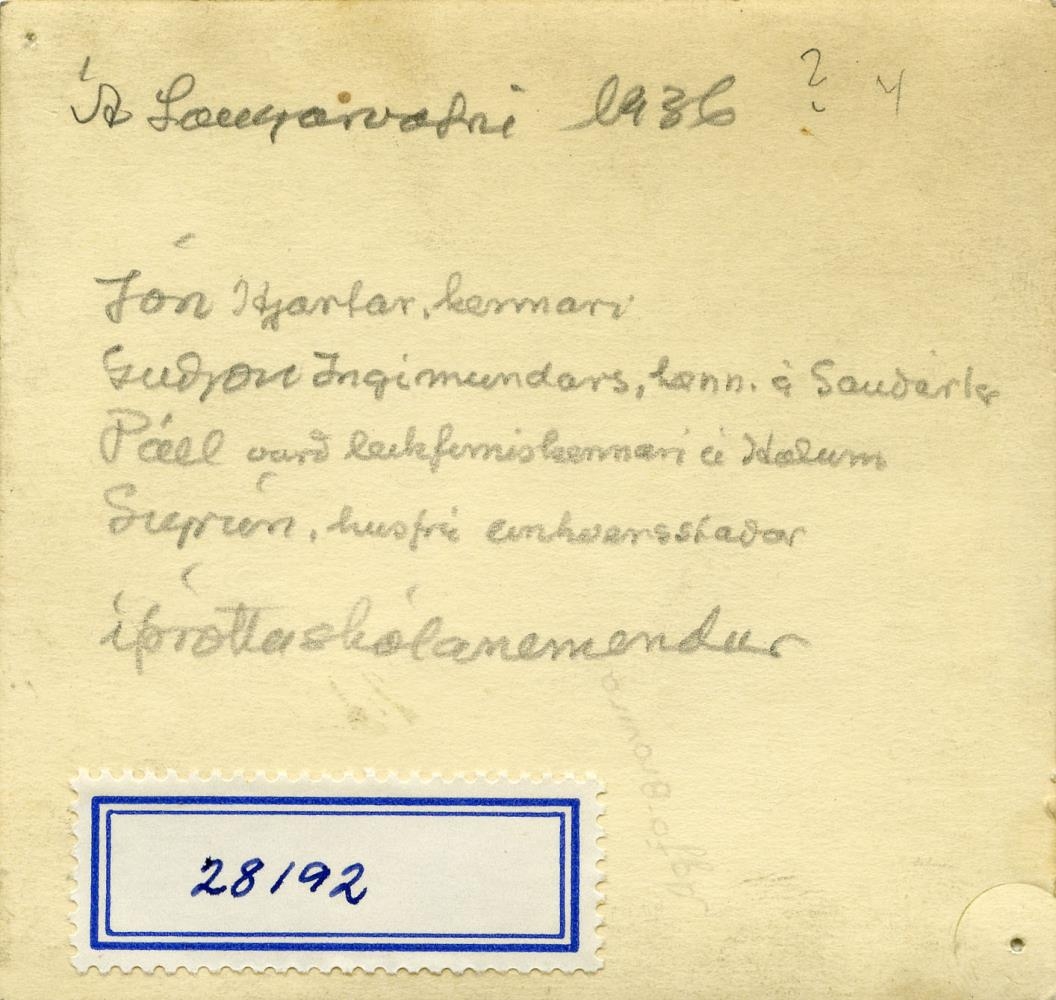 Á Laugarvatni 1936 ? 4
Jón Hjartar, kennari
Guðjón Ingimundars, kenn. á Sauðárkr
Páll varð leikfimiskennari á Hólum
Sigrún, húsfrú einhversstaðar
íþróttaskólanemendur
28192